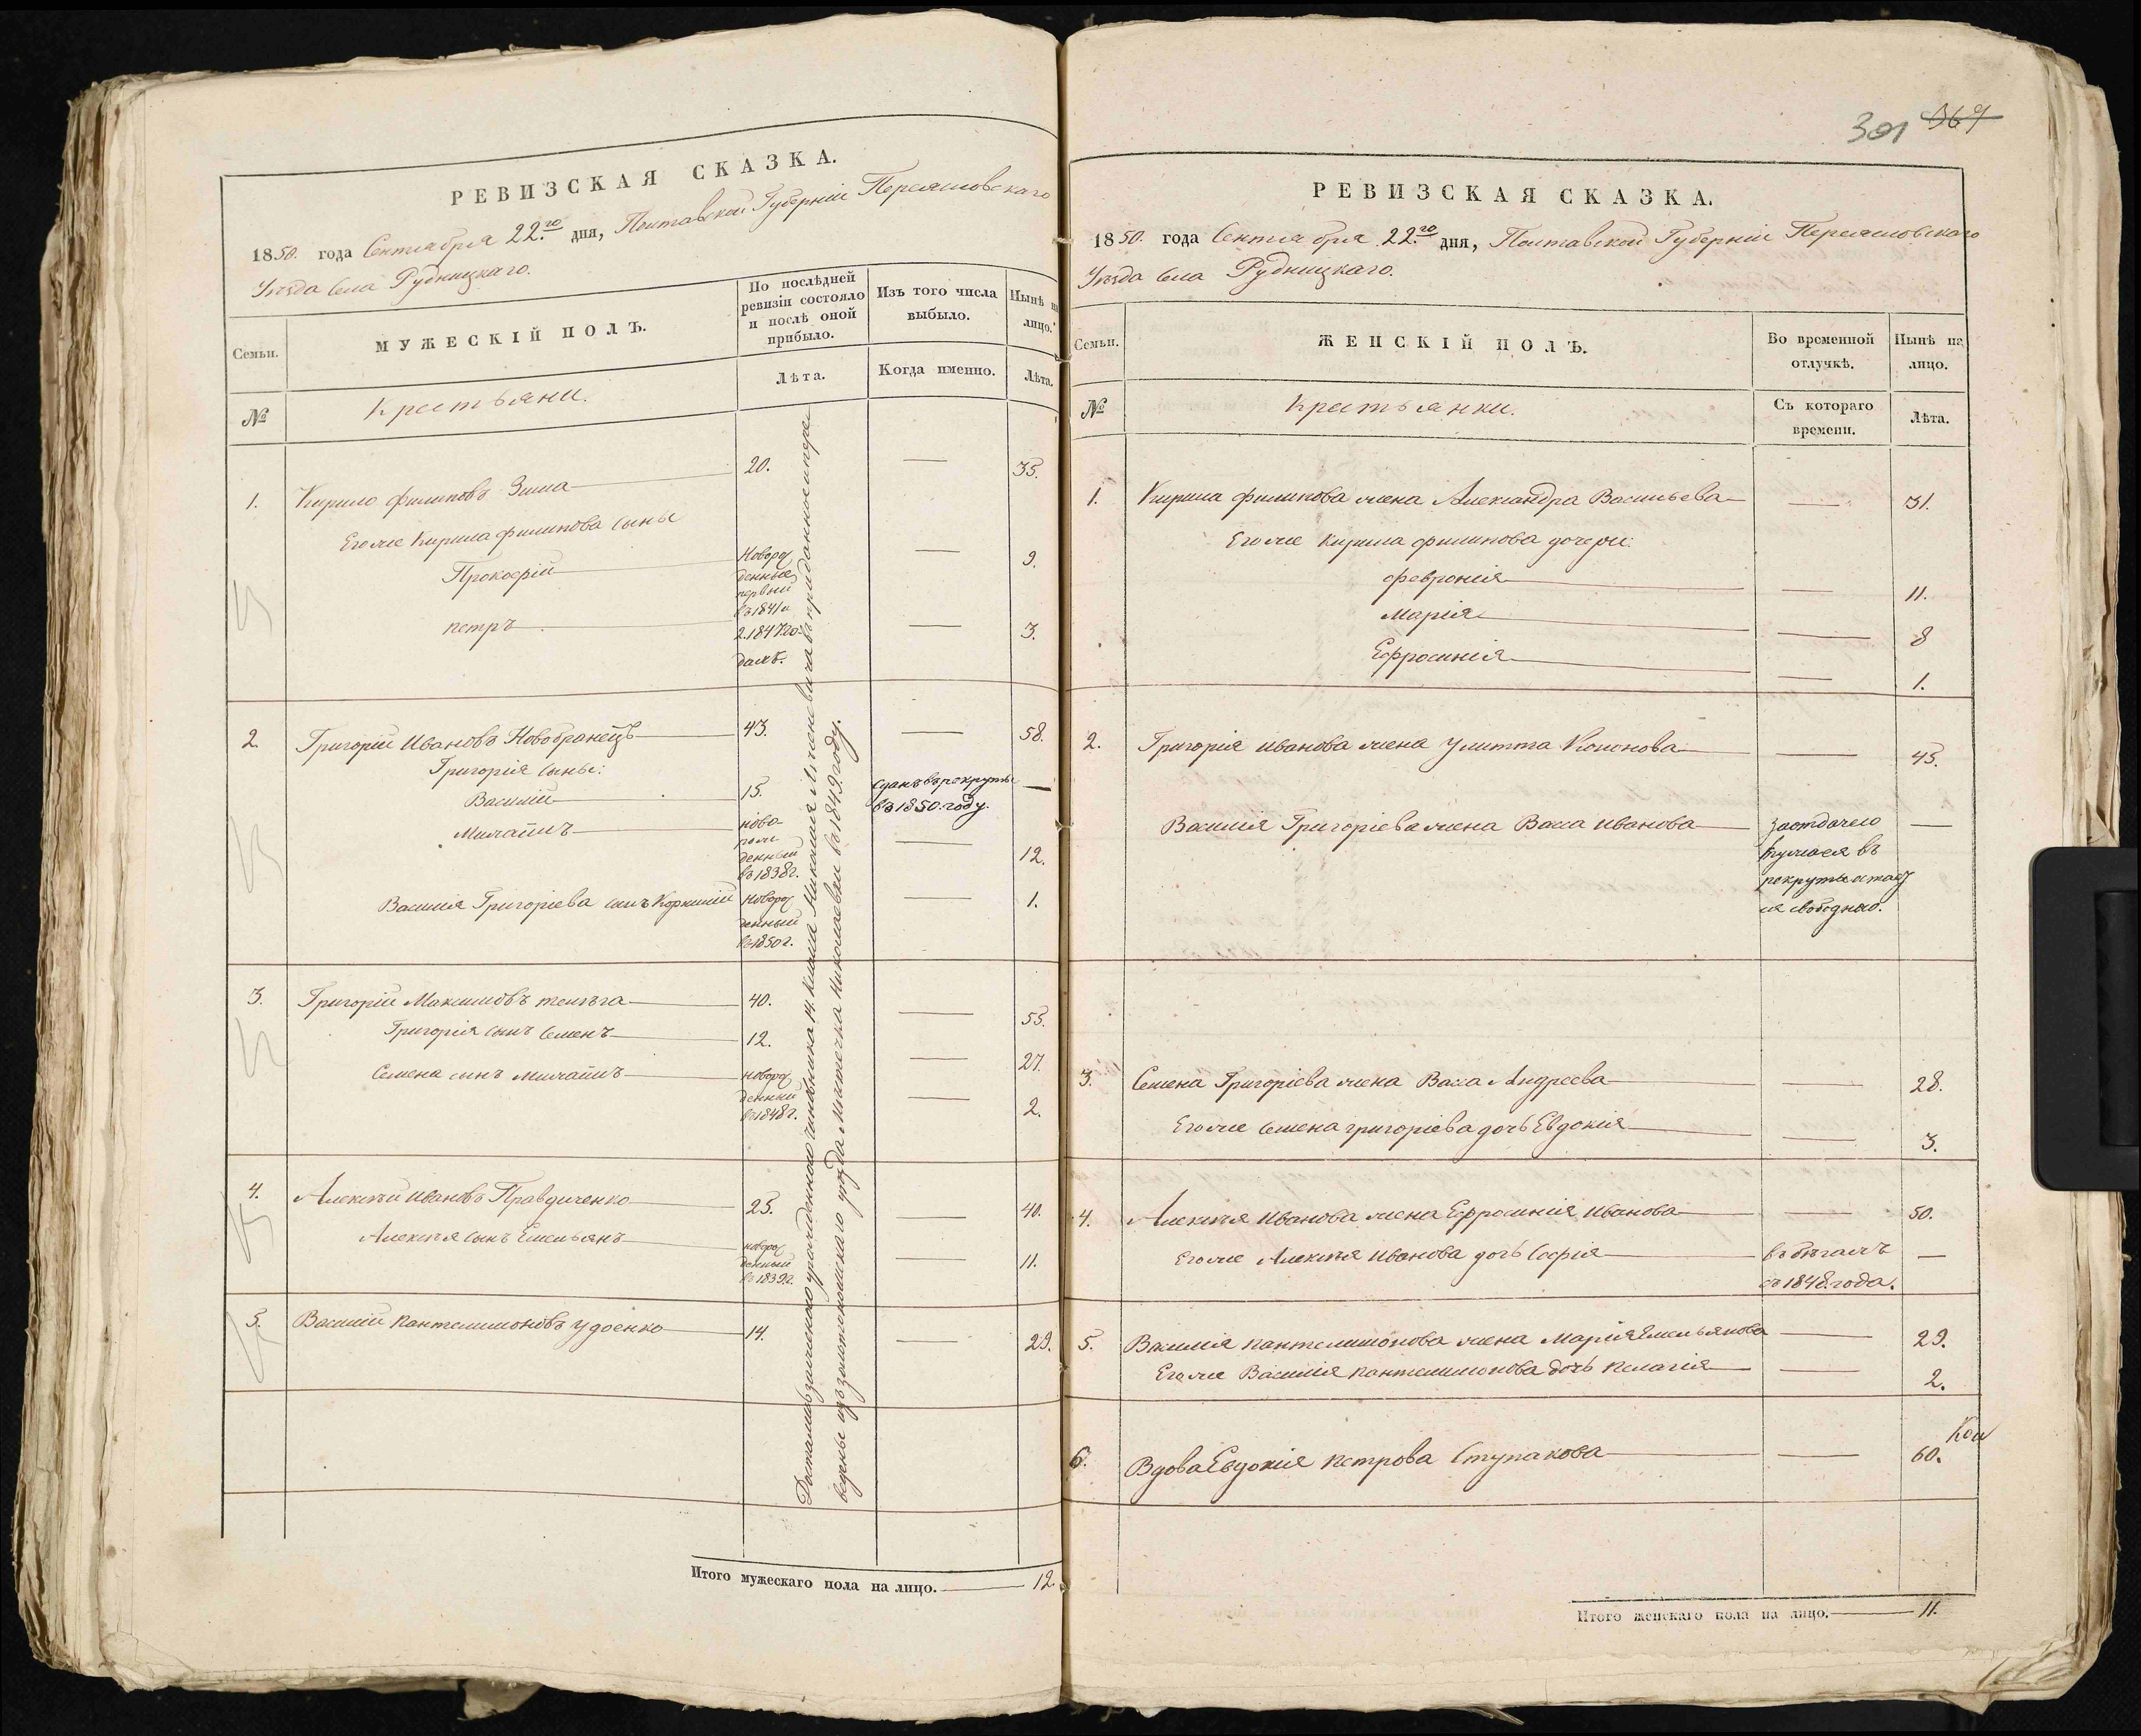 РЕВИЗСКАЯ СКАЗКА.
1850. года Сентября 22.го дня, Полтавской Губерніи Переясловскаго
Уѣзда Села Рудницкаго.
Семьи.
МУЖЕСКІЙ ПОЛЪ.
По послѣдней ревизіи состояло и послѣ оной прибыло.
Изъ того числа выбыло.
Нынѣ на лицо.
№
Крестьяни.
Лѣта.
Когда именно.
Лѣта.
1. Кирило Филиповъ Зима 20. — 35.
Его же Кирила Филипова сыны
Прокофій Новорожденные первый въ 1841 и — 9.
Петръ 2. 1847 годахъ. — 3.
2. Григорій Ивановъ Новобранецъ 43. — 58.
Григорія сыны:
Василій 15. сданъ въ рекруты въ 1850. году. —
Михаилъ новорожденный въ 1838 г. — 12.
Василія Григоріева сынъ Корнилій новорожденный въ 1850 г. — 1.
3. Григорій Максимовъ телѣга 40. — 55.
Григорія сынъ Семенъ 12. — 27.
Семена сынъ Михаилъ новорожденный въ 1848 г. — 2.
4. Алексѣй Ивановъ Правдиченко 25. — 40.
Алексѣя сынъ Емельянъ новорожденный въ 1839 г. — 11.
5. Василій Пантелимоновъ Удоенко 14. — 29.
14. класса Николая
уѣзда Мѣстечка Николаевки въ 1849. году.
Итого мужескаго пола на лицо. — 12.
301 367
РЕВИЗСКАЯ СКАЗКА.
1850. года Сентября 22.го дня, Полтавской Губерніи Переясловскаго
Уѣзда Села Рудницкаго.
Семьи.
ЖЕНСКІЙ ПОЛЪ.
Во временной отлучкѣ.
Нынѣ на лицо.
№
Крестьянки.
Съ котораго времени.
Лѣта.
1. Кирила Филипова жена Александра Васильева — 31.
Его же Кирила Филипова дочери:
Февронія — 11.
Марія — 8
Ефросинія — 1.
2. Григорія Иванова жена Улитта Кононова — 45.
Василія Григоріева жена Васа Иванова —
рекруты
свободною.
3. Семена Григоріева жена Васа Андреева — 28.
Его же Семена Григоріева дочь Евдокія — 3.
4. Алексѣя Иванова жена Ефросинія Иванова — 50.
Его же Алексѣя Иванова дочь Софія въ бѣгахъ съ 1848. года. —
5. Василія Пантелимонова жена Марія Емельянова — 29.
Его же Василія Пантелимонова дочь Пелагія — 2.
6. Вдова Евдокія Петрова Ступакова — 60.
Итого женскаго пола на лицо. — 11.